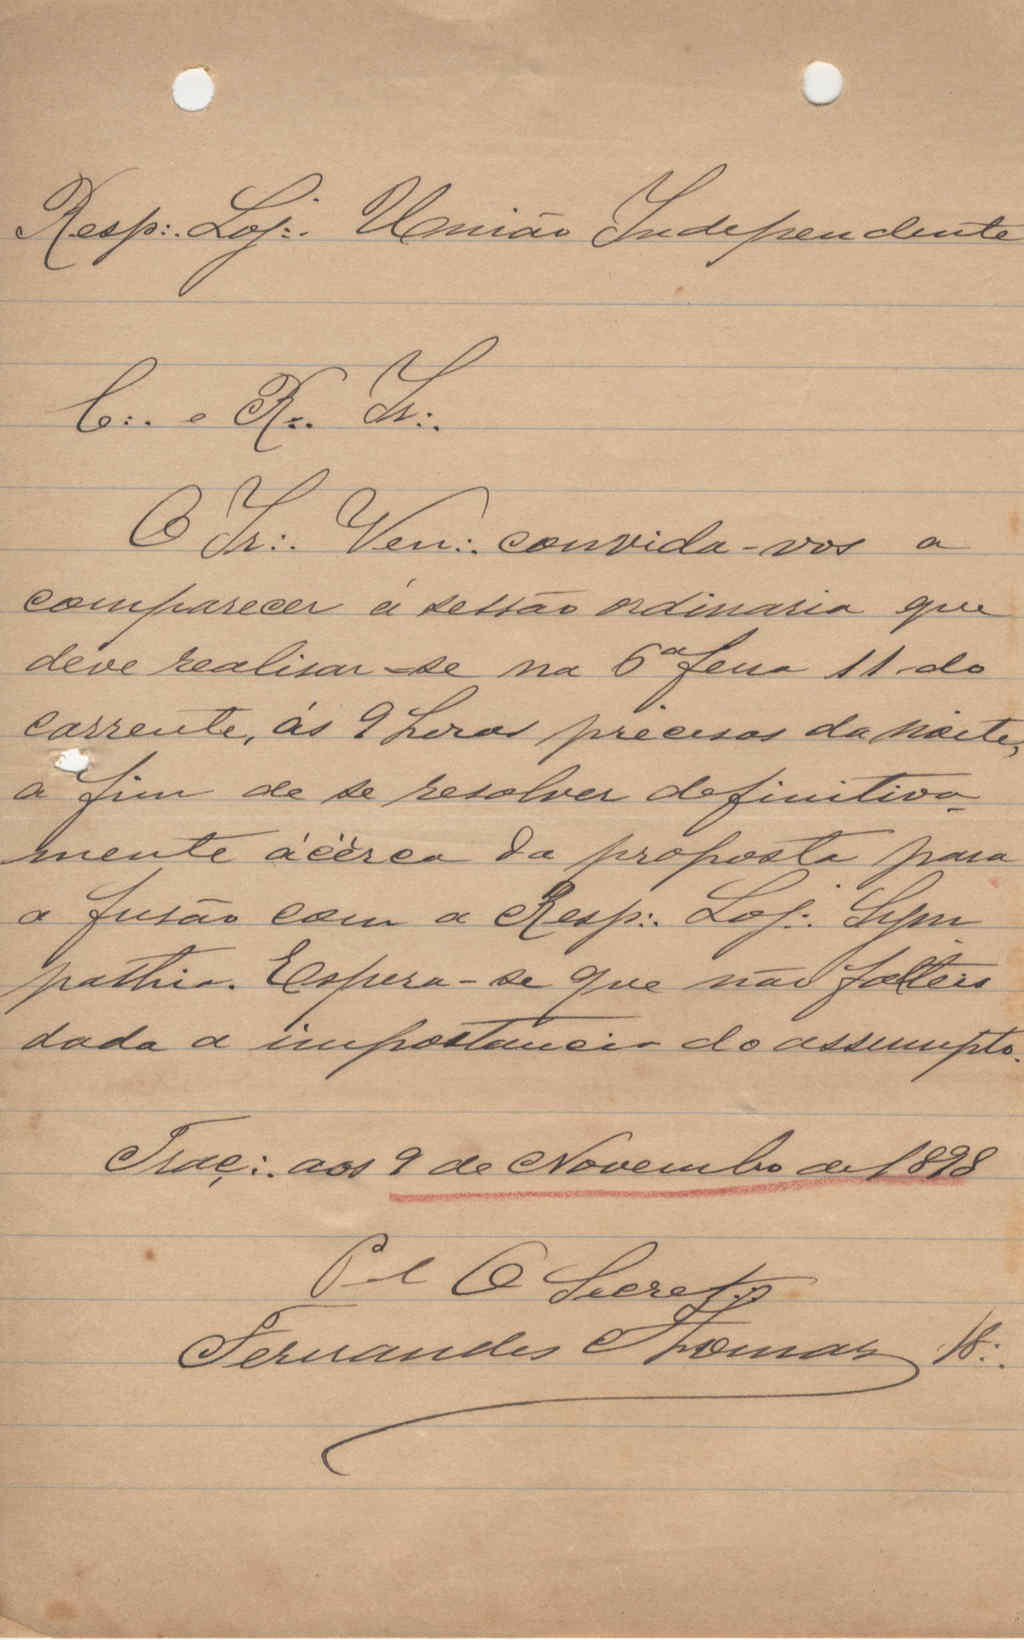 Resp∴ Loj∴ União Independente
C∴ e R∴ Ir∴
O Ir∴ Ven∴ convida-vos a
comparecer á sessão ordinaria que
deve realisar-se na 6ª feira 11 do
corrente, ás 9 horas precisas da noite,
a fim de se resolver definitiva-
mente ácêrca da proposta para
a fusão com a Resp∴ Loj∴ Sym
pathia. Espera-se que não falteis
dada a importancia do assumpto.
Traç∴ aos 9 de Novembro de 1898
Pel O Secret∴
Fernandes Thomaz